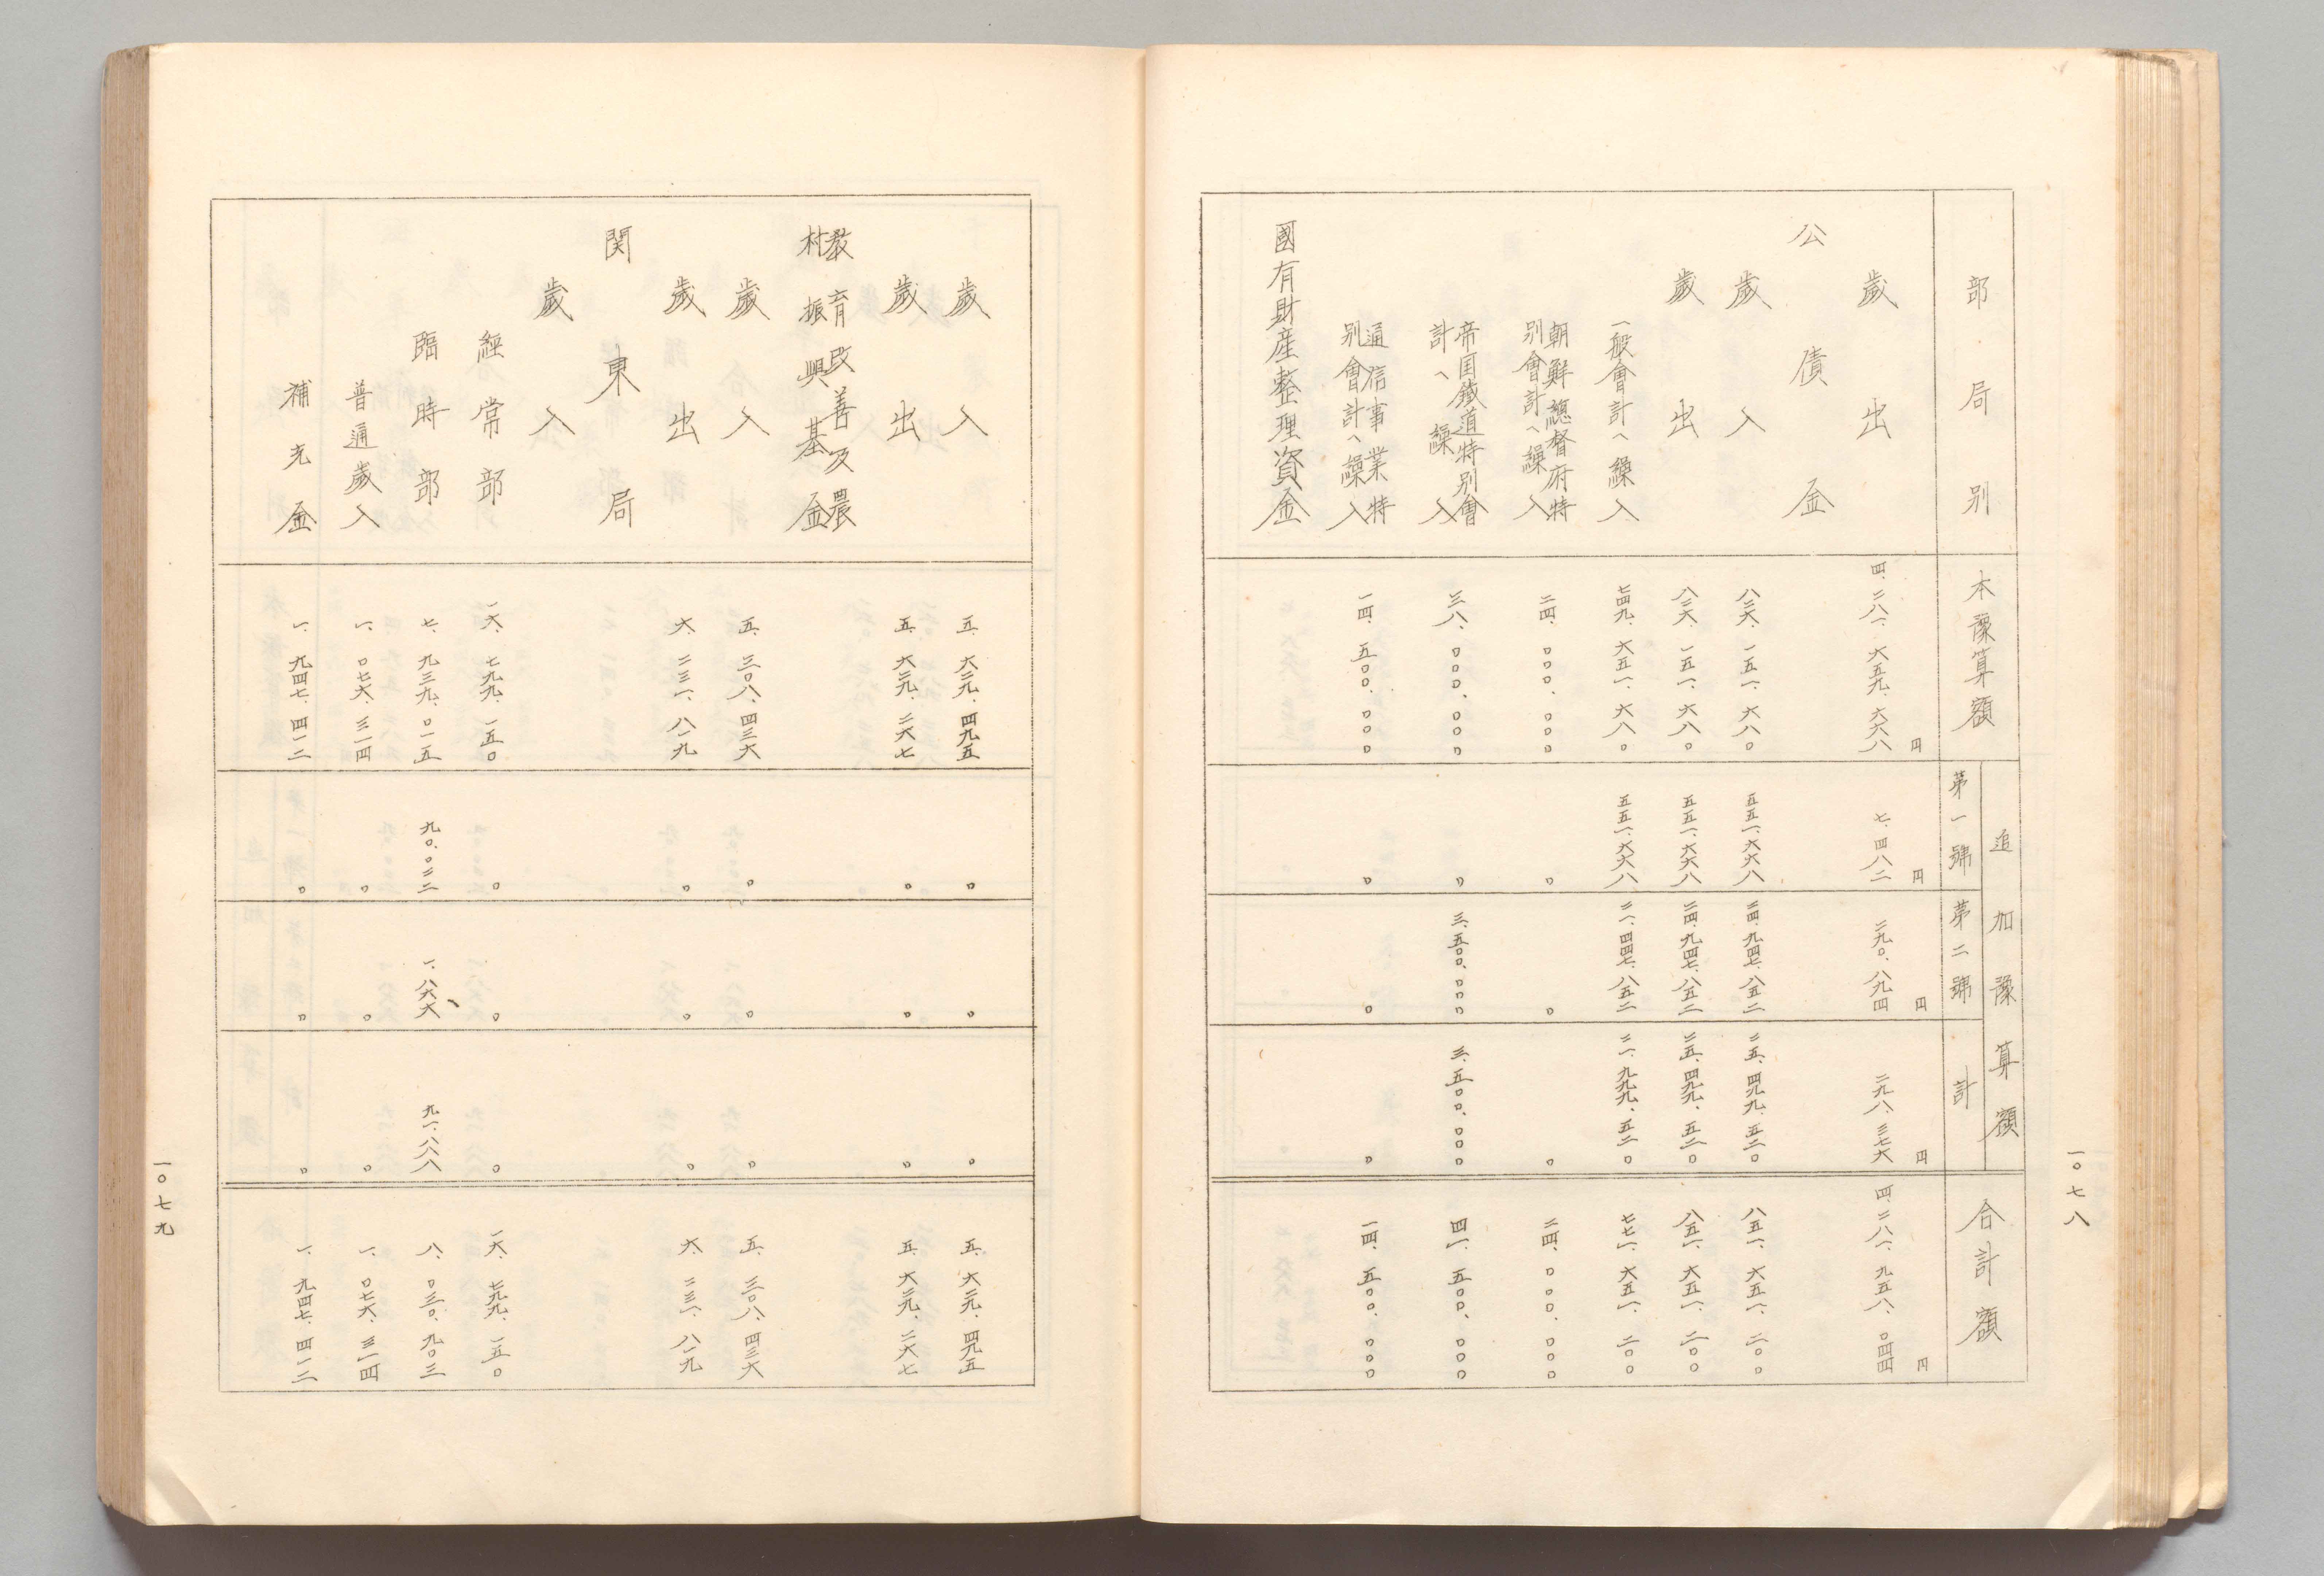 一〇七八
部局別 本豫算額 追加豫算額 第一號 第二號 計 合計額
円 円 円 円 円
歳出 四、二八一、六五九、六六八 七、四八二 二九〇、八九四 二九八、三七六 四、二八一、九五八、〇四四
公債金
歳入 八二六、一五一、六八〇 五五一、六六八 二四、九四七、八五二 二五、四九九、五二〇 八五一、六五一、二〇〇
歳出 八二六、一五一、六八〇 五五一、六六八 二四、九四七、八五二 二五、四九九、五二〇 八五一、六五一、二〇〇
一般會計へ繰入 七四九、六五一、六八〇 五五一、六六八 二一、四四七、八五二 二一、九九九、五二〇 七七一、六五一、二〇〇
朝鮮總督府特
別會計へ繰入 二四、〇〇〇、〇〇〇 〇 〇 〇 二四、〇〇〇、〇〇〇
帝国鐵道特別會
計へ繰入 三八、〇〇〇、〇〇〇 〇 三、五〇〇、〇〇〇 三、五〇〇、〇〇〇 四一、五〇〇、〇〇〇
通信事業特
別會計へ繰入 一四、五〇〇、〇〇〇 〇 〇 〇 一四、五〇〇、〇〇〇
國有財産整理資金
歳入 五、六三九、四九五 〇 〇 〇 五、六三九、四九五
歳出 五、六三九、二六七 〇 〇 〇 五、六三九、二六七
教育改善及農
村振興基金
歳入 五、三〇八、四三六 〇 〇 〇 五、三〇八、四三六
歳出 六、二三一、八一九 〇 〇 〇 六、二三一、八一九
関東局
歳入
経常部 一六、七九九、一五〇 〇 〇 〇 一六、七九九、一五〇
臨時部 七、九三九、〇一五 九〇、〇二二 一、八六六 九一、八八八 八、〇三〇、九〇三
普通歳入 一、〇七六、三一四 〇 〇 〇 一、〇七六、三一四
補充金 一、九四七、四一二 〇 〇 〇 一、九四七、四一二
一〇七九